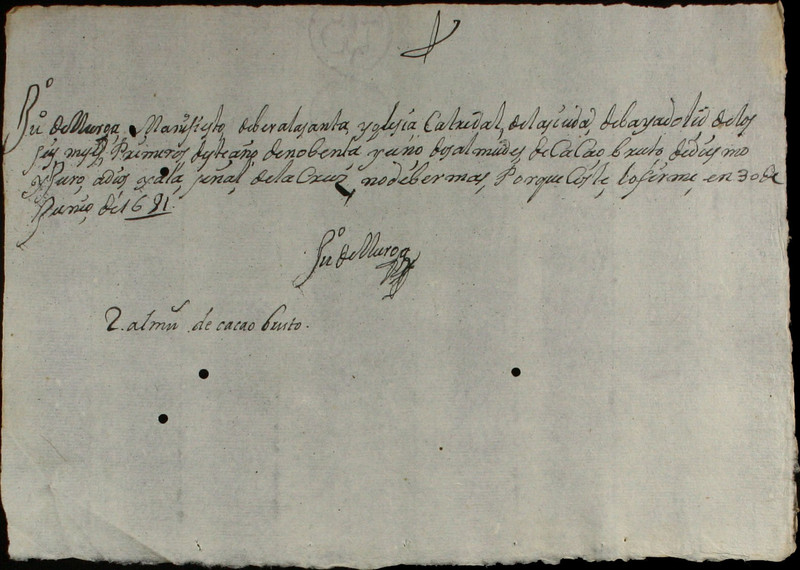 Juº de Murga Manifiesto deber a la santa yglesia Catredal de la siuda de bayadolid de los
seis meses Primeros deste año de nobenta y uno dos almudes de Cacao bruto de diesmo
y Juro a dios y a la señal de la Cruz no deber mas, Porque Coste lo firme en 30 de
Junio de 1691.
Juº de Murga
2. almuˢ de cacao bruto.